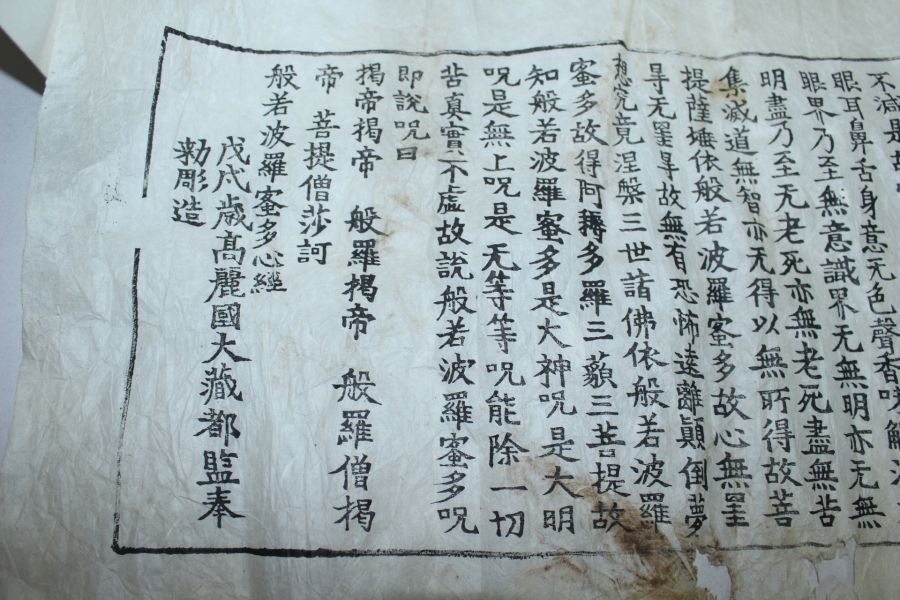 不減是故
眼耳鼻舌身意无色聲香味
眼界乃至無意識界无無明亦无無
明盡乃至无老死亦無老死盡無苦
集滅道無智亦无得以無所得故菩
提薩埵依般若波羅蜜多故心無罣
㝵无罣㝵故無有恐怖遠離顚倒夢
想究竟涅槃三世諸佛依般若波羅
蜜多故得阿耨多羅三藐三菩提故
知般若波羅蜜多是大神呪是大明
呪是無上呪是无等等呪能除一切
苦真實不虛故說般若波羅蜜多呪
即說呪曰
揭帝揭帝 般羅揭帝 般羅僧揭
帝 菩提僧莎訶
般若波羅蜜多心經
戊戌歲高麗國大藏都監奉
勑彫造